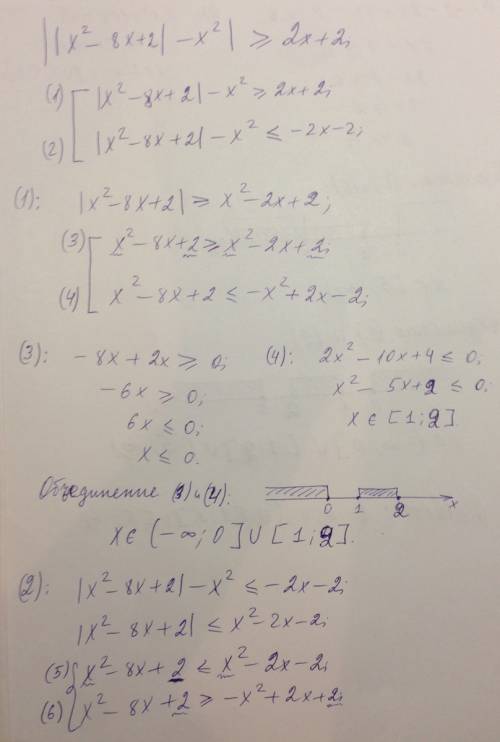 ||x² - 8x + 2| - x²| ≥ 2x + 2;
(1) [ |x² - 8x + 2| - x² ≥ 2x + 2;
(2) [ |x² - 8x + 2| - x² ≤ -2x - 2;
(1): |x² - 8x + 2| ≥ x² - 2x + 2;
(3) [ x² - 8x + 2 ≥ x² - 2x + 2;
(4) [ x² - 8x + 2 ≤ -x² + 2x - 2;
(3): -8x + 2x ≥ 0; (4): 2x² - 10x + 4 ≤ 0;
-6x ≥ 0; x² - 5x + 2 ≤ 0;
6x ≤ 0; x ∈ [1; 2].
x ≤ 0.
Объединение (3) и (4):
0 1 2 x
x ∈ (-∞; 0] ∪ [1; 2].
(2): |x² - 8x + 2| - x² ≤ -2x - 2;
|x² - 8x + 2| ≤ x² - 2x - 2;
(5) { x² - 8x + 2 ≤ x² - 2x - 2;
(6) { x² - 8x + 2 ≥ -x² + 2x + 2;